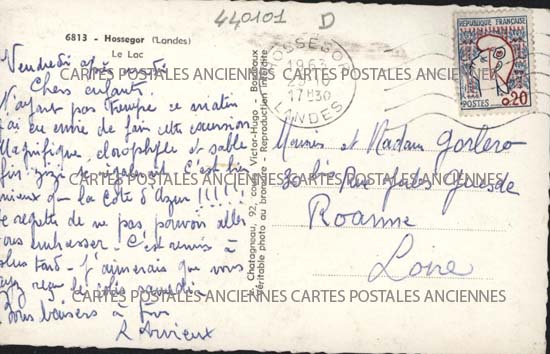 440101 D
6813 - Hossegor (Landes)
Le Lac
Vendredi après midi
Chers enfants.
N'ayant pas trempé ce matin
j'ai eu envie de faire cette excursion
Magnifique, chlorophylle et sable
fin
mieux que la Côte d'azur !!!!
Je regrette de ne pas pouvoir aller
vous embrasser - C'est remis à
plus tard - J'aimerais que vous
ayez reçu le colis samedi -
Bons baisers à tous
R Arvieux
S. Chatagneau, 92, cours Victor-Hugo - Bordeaux
Véritable photo au bromure - Reproduction interdite
HOSSEGOR
1963
17H30
LANDES
REPUBLIQUE FRANÇAISE
POSTES 0,20
Monsieur et Madame Gorlero
Rue Jules Guesde
Roanne
Loire
CARTES POSTALES ANCIENNES CARTES POSTALES ANCIENNES
CARTES POSTALES ANCIENNES CARTES POSTALES ANCIENNES
CARTES POSTALES ANCIENNES CARTES POSTALES ANCIENNES